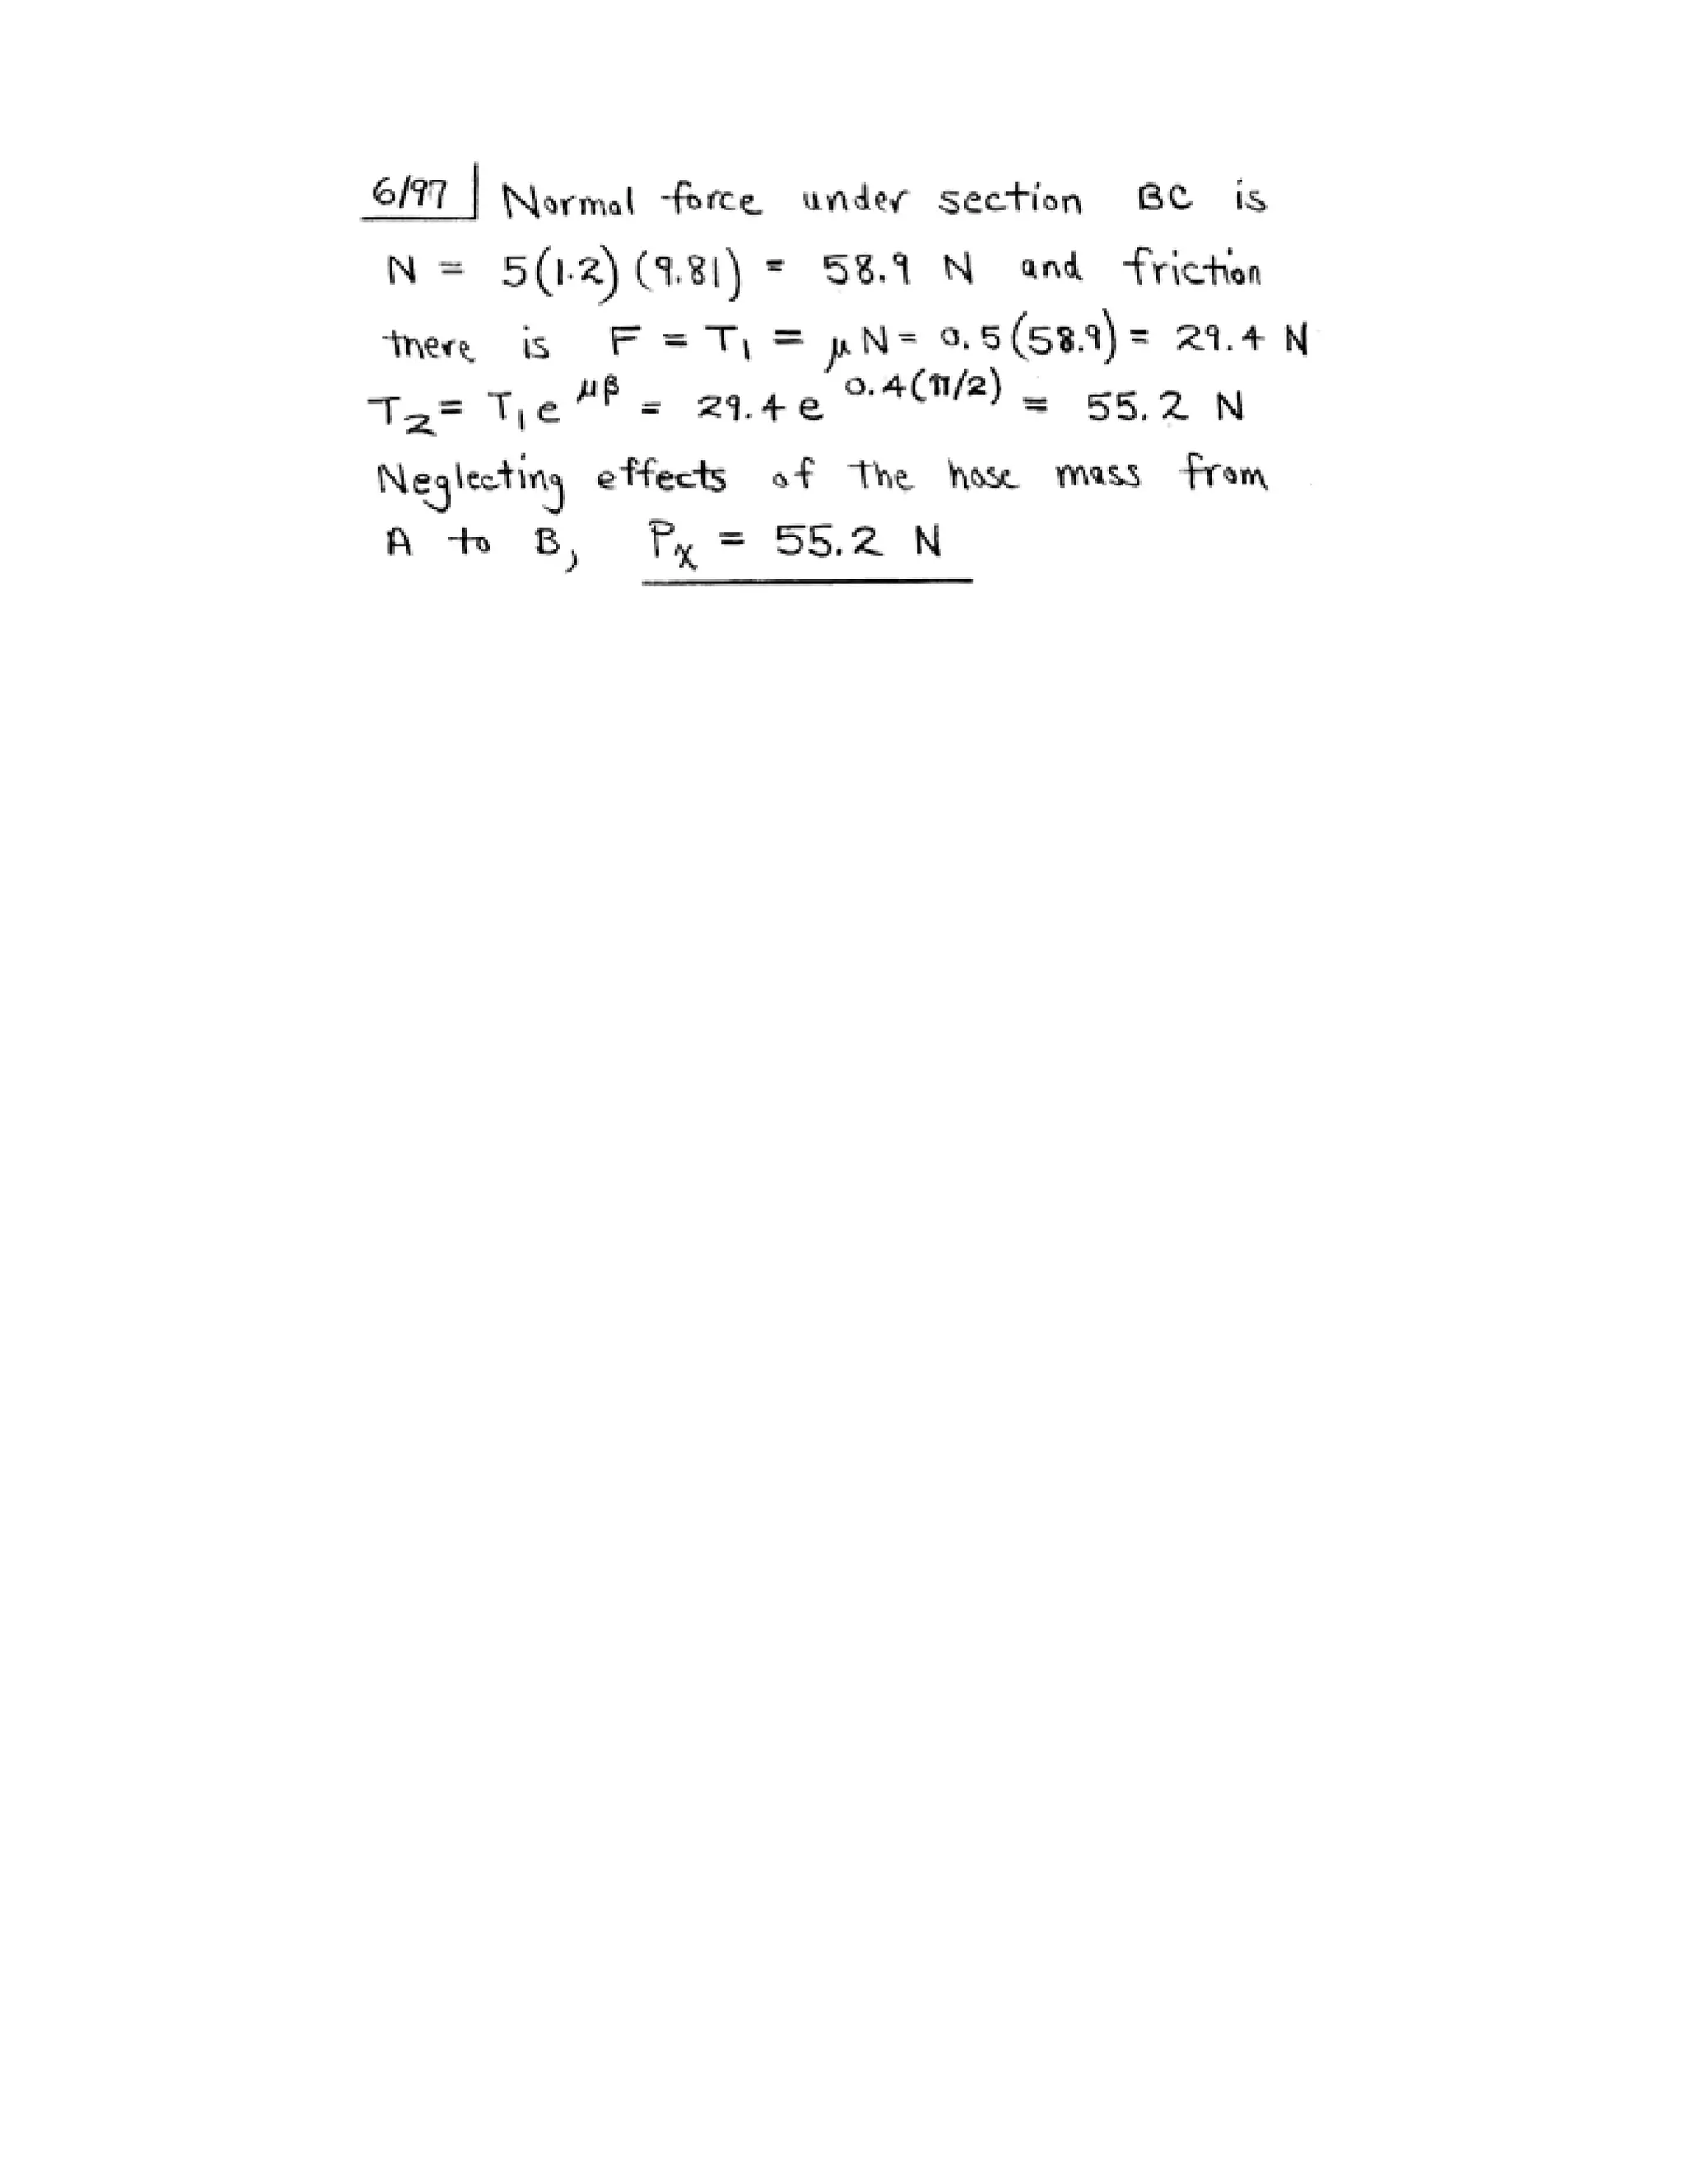 6/97 Normal force under section BC is
N = 5(1.2)(9.81) = 58.9 N and friction
there is F = T₁ = μN = 0.5(58.9) = 29.4 N
T₂ = T₁e^μβ = 29.4 e^0.4(π/2) = 55.2 N
Neglecting effects of the hose mass from
A to B, Pₓ = 55.2 N